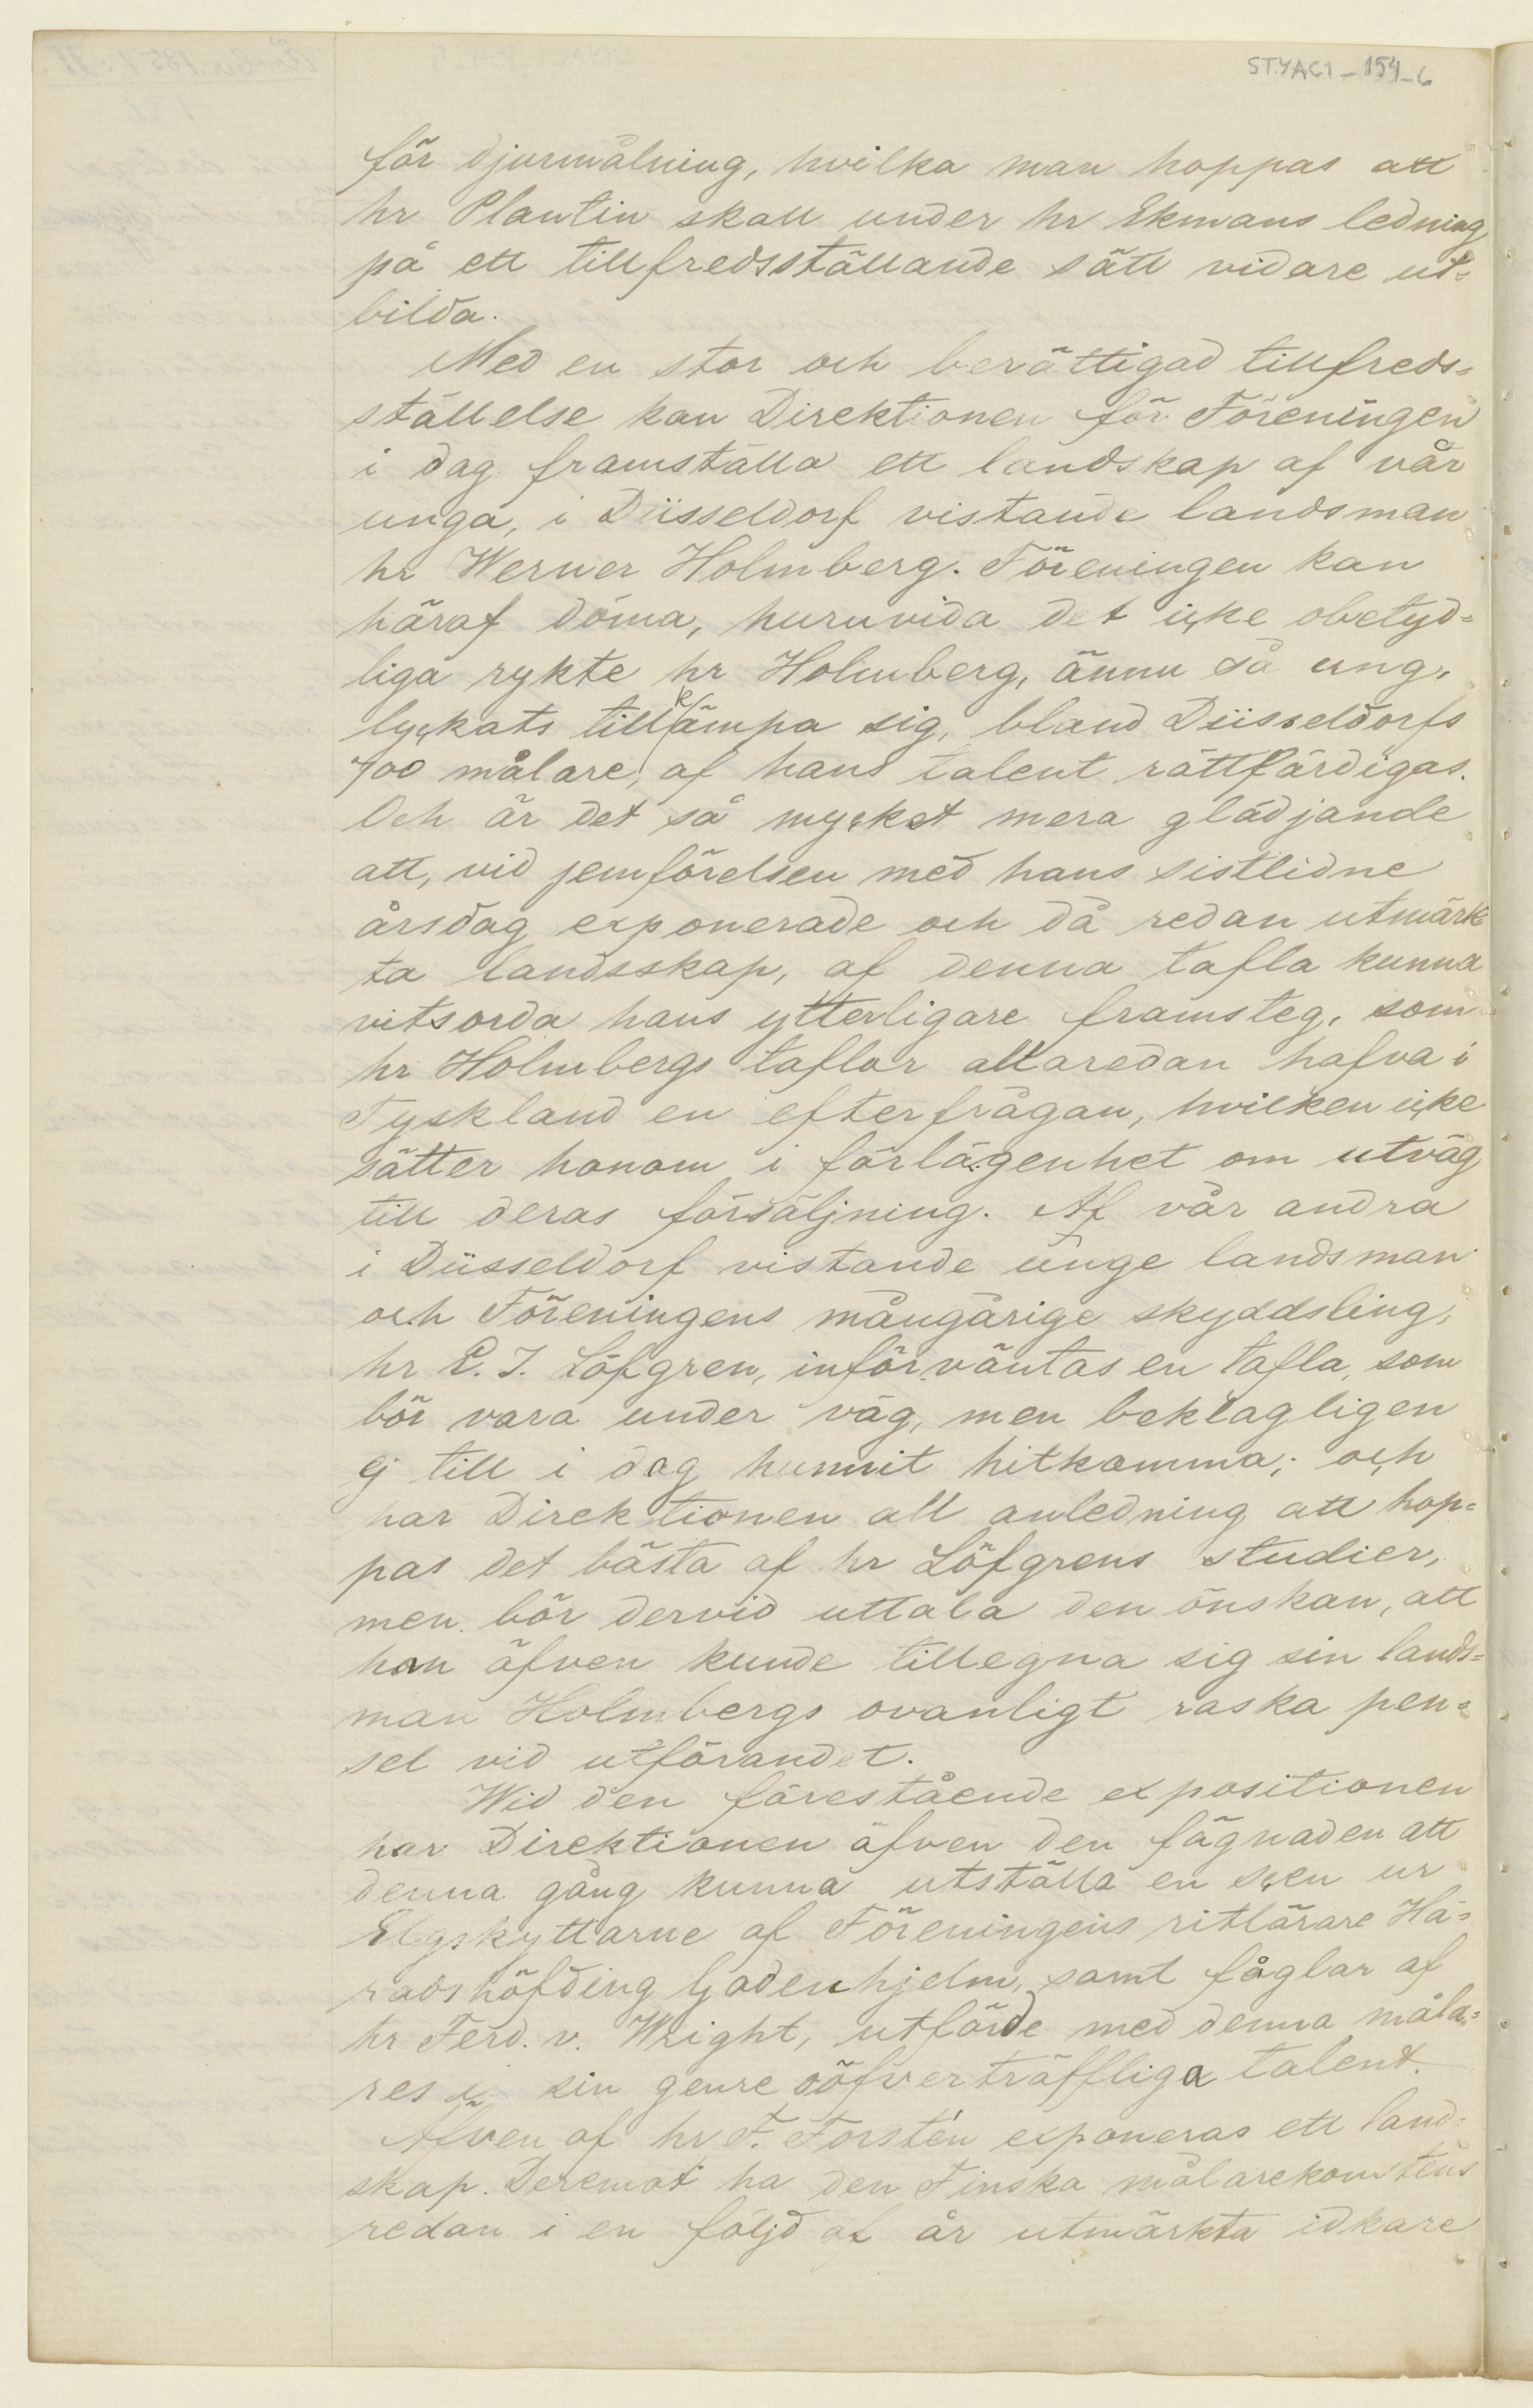 STYAC1_154_6
för djurmålning, hvilka man hoppas att
hr Plantin skall under hr Ekmans ledning
på ett tillfredsställande sätt vidare ut=
bilda.
Med en stor och berättigad tillfreds=
ställelse kan Direktionen för Föreningen
i dag framställa ett landskap af vår
unga, i Düsseldorf vistande landsman
hr Werner Holmberg. Föreningen kan
häraf döma, huruvida det icke obetyd=
liga rykte hr Holmberg, ännu så ung,
lyckats tillkämpa sig, bland Düsseldorfs
700 målare, af hans talent rättfärdigas.
Och är det så mycket mera glädjande
att, vid jemförelsen med hans sistlidne
årsdag exponerade och då redan utmärk
ta landsskap, af denna tafla kunna
vitsorda hans ytterligare framsteg, som
hr Holmbergs taflor allaredan hafva i
Tyskland en efterfrågan, hvilken icke
sätter honom i förlägenhet om utväg
till deras försäljning. Af vår andra
i Düsseldorf vistande unge landsman
och Föreningens mångårige skyddsling,
hr E. J. Löfgren, införväntas en tafla, som
bör vara under väg, men beklagligen
ej till i dag hunnit hitkomma; och
har Direktionen all anledning att hop=
pas det bästa af hr Löfgrens studier,
men bör dervid uttala den önskan, att
han äfven kunde tillegna sig sin lands=
man Holmbergs ovanligt raska pen=
sel vid utförandet.
Wid den förestående expositionen
har Direktionen äfven den fägnaden att
denna gång kunna utställa en scen ur
Elgskyttarne af Föreningens ritlärare Hä=
radshöfding Godenhjelm, samt fåglar af
hr Ferd. v. Wright, utförde med denna måla=
res i sin genre oöfverträffliga talent.
Äfven af hr F. Forstén exponeras ett land=
skap. Deremot ha den Finska målarekonstens
redan i en följd af år utmärkta idkare